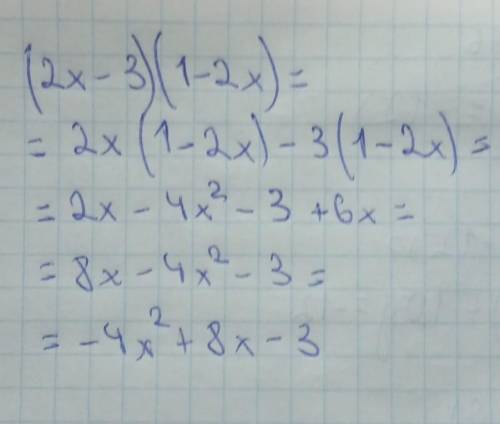 (2x - 3)(1 - 2x) =
= 2x(1 - 2x) - 3(1 - 2x) =
= 2x - 4x² - 3 + 6x =
= 8x - 4x² - 3 =
= -4x² + 8x - 3